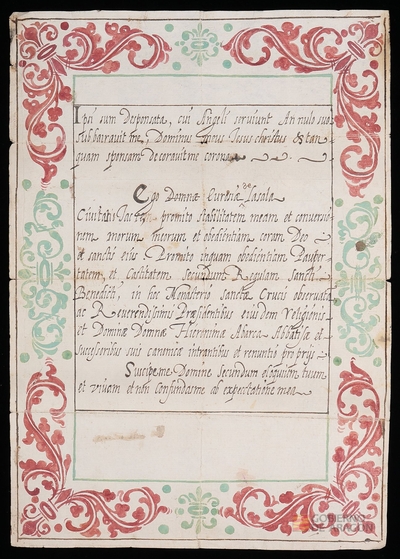 Ipsi sum Desponsata, cui Angeli serviunt Annulo suo
subharravit me, Dominus meus Iesus christus & tan
quam sponsam decoravit me corona
Ego Domna Eurosia de Lasala
Civitatis promito stabilitatem meam et conversio
nem morum meorum et obedientiam coram Deo
et sanctis eius Promito inquam obedientiam Pauper
tatem, et Castitatem Secundum Regulam Sancti
Benedicti, in hoc Monasterio sanctæ Crucis observata
ac Reverendissimis Præsidentibus eiusdem Religionis
et Dominæ Domnæ Hieronima Abarca Abbatisæ et
succesoribus suis canonice intrantibus et renuntio proprijs
Suscipe me Domine Secundum eloquium tuum
et vivam et non Confundas me ab expectatione mea
GOBIERNO
DE ARAGON